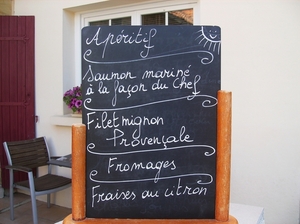 Apéritif
Saumon mariné
à la façon du Chef
Filet mignon
Provençale
Fromages
Fraises au citron